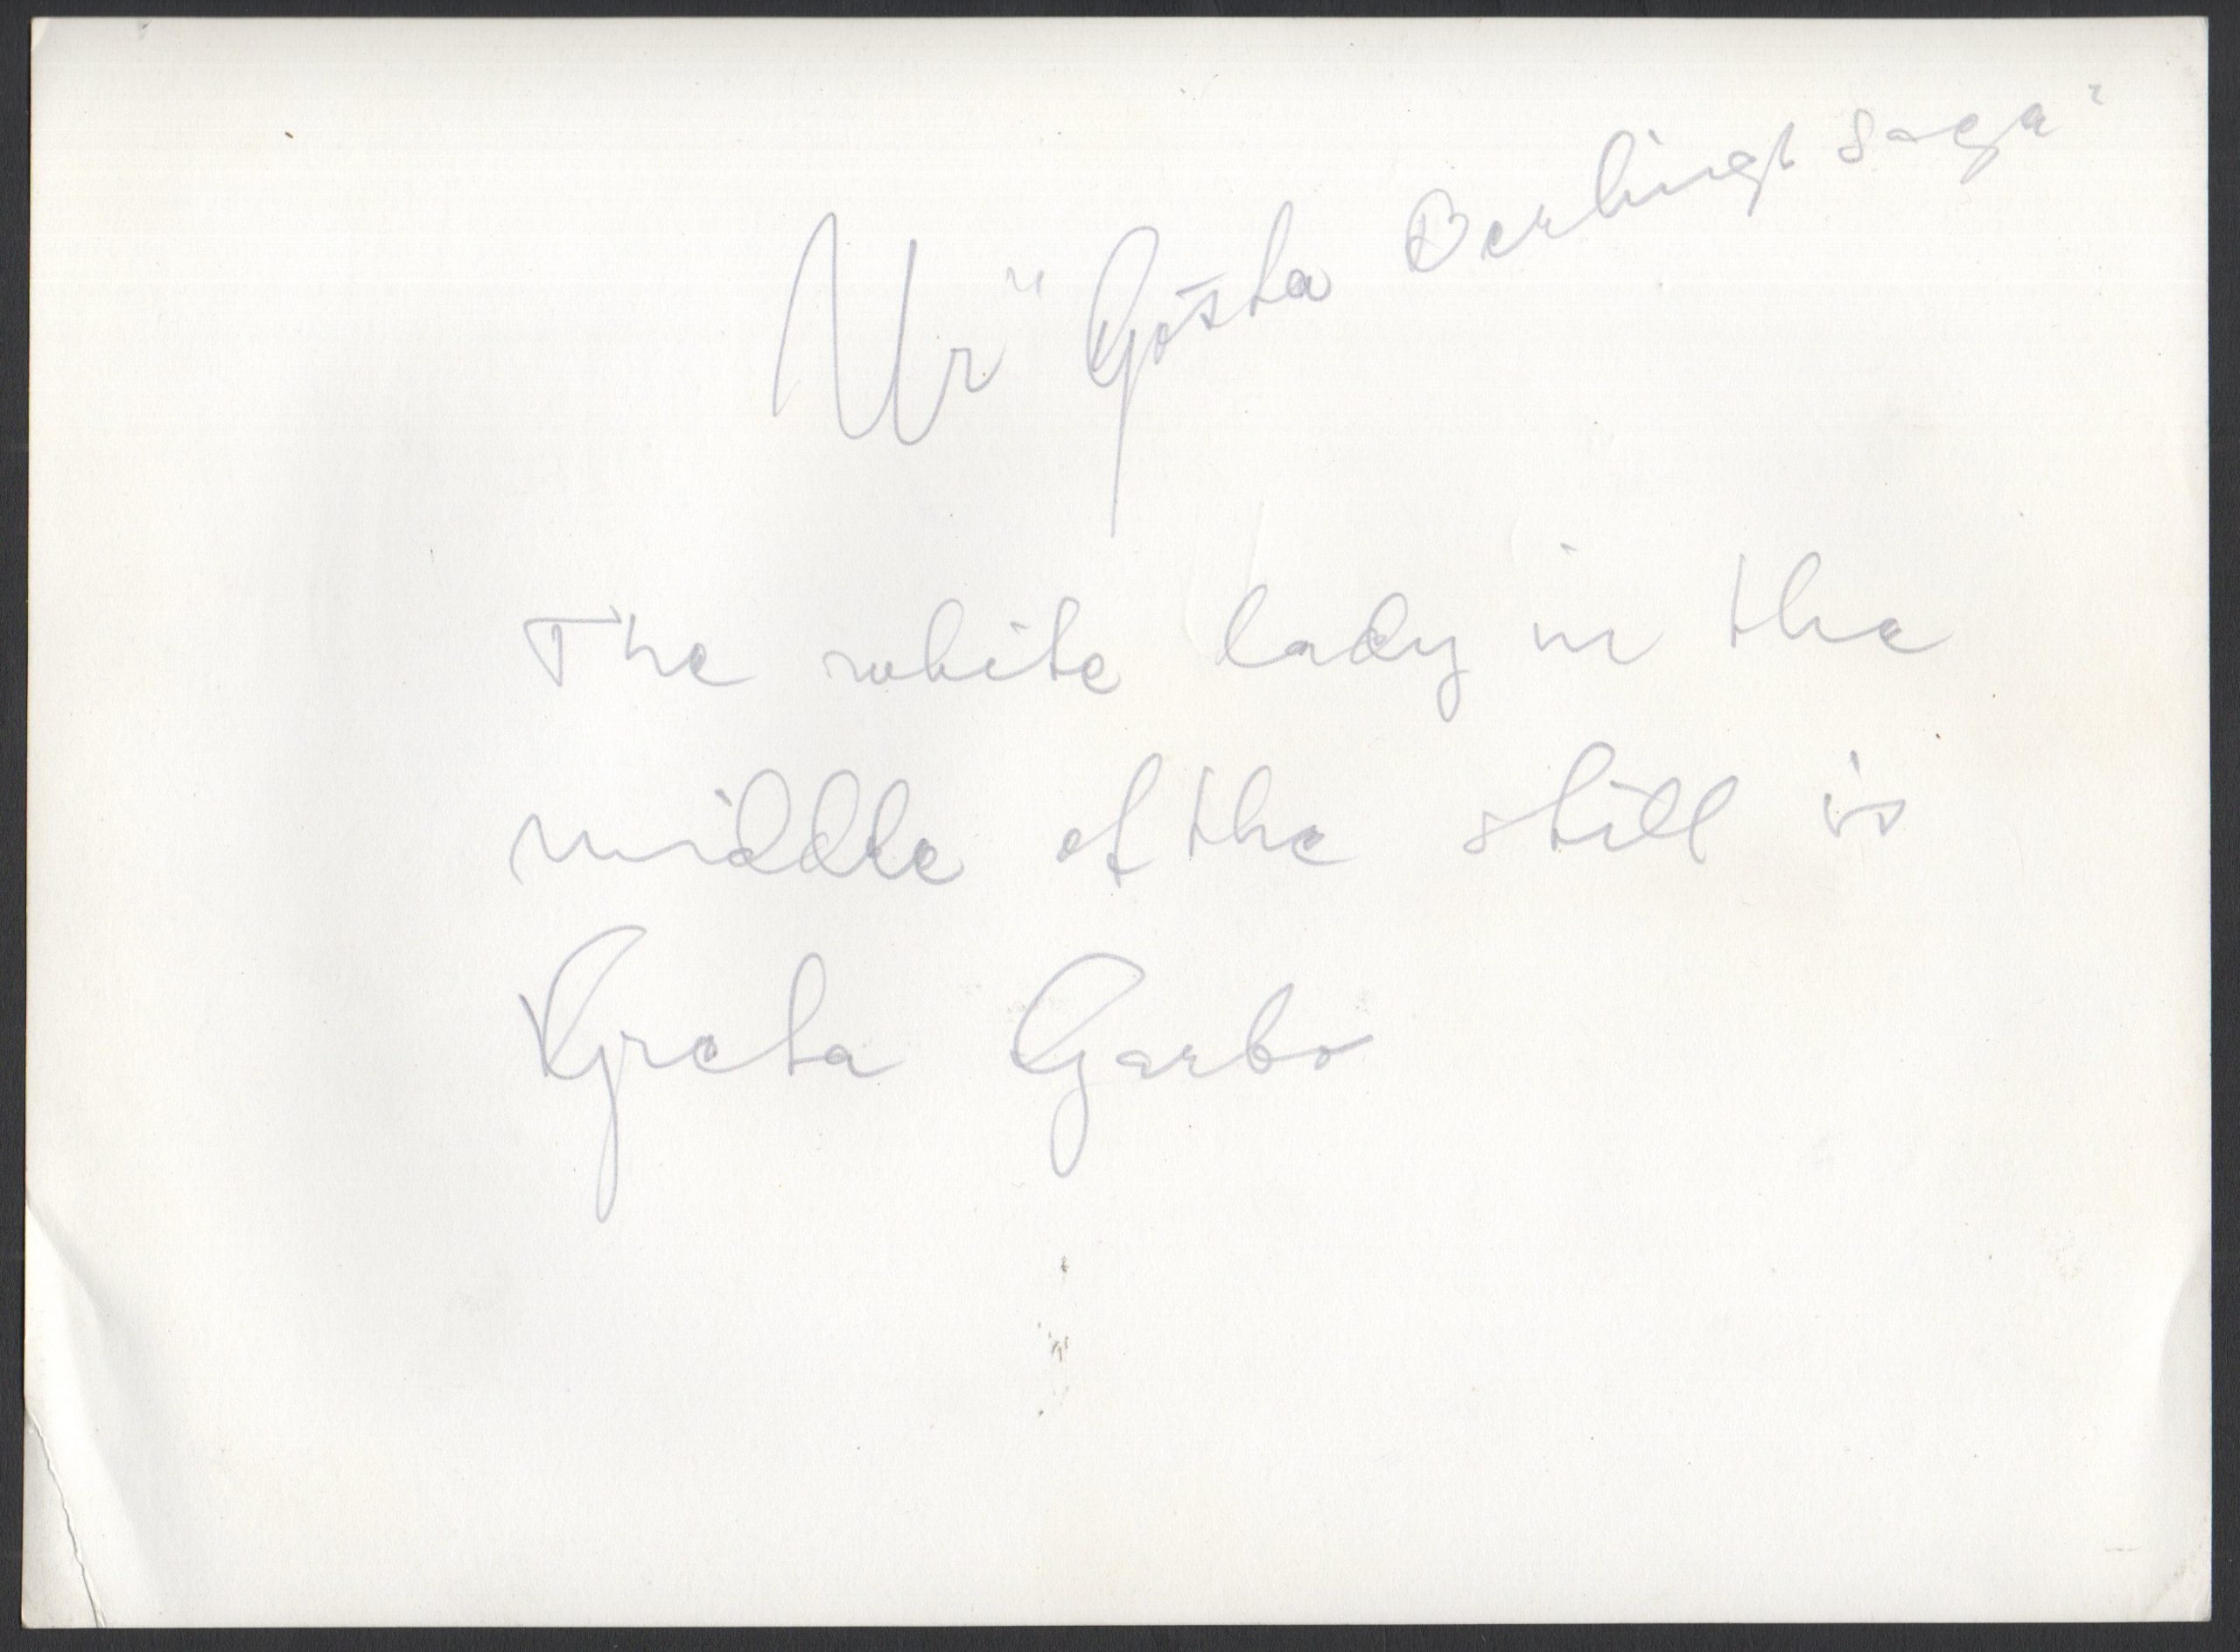 Ur "Gösta Berlings Saga"
The white lady in the
middle of the still is
Greta Garbo